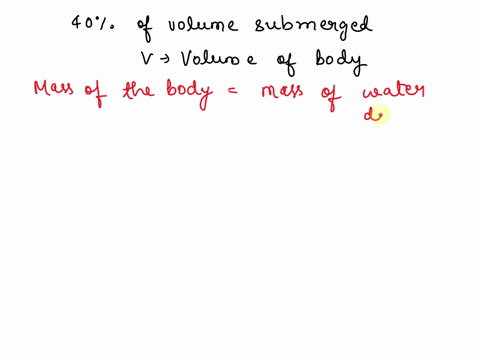 40%. of volume submerged
V → Volume of body
Mass of the body = mass of water